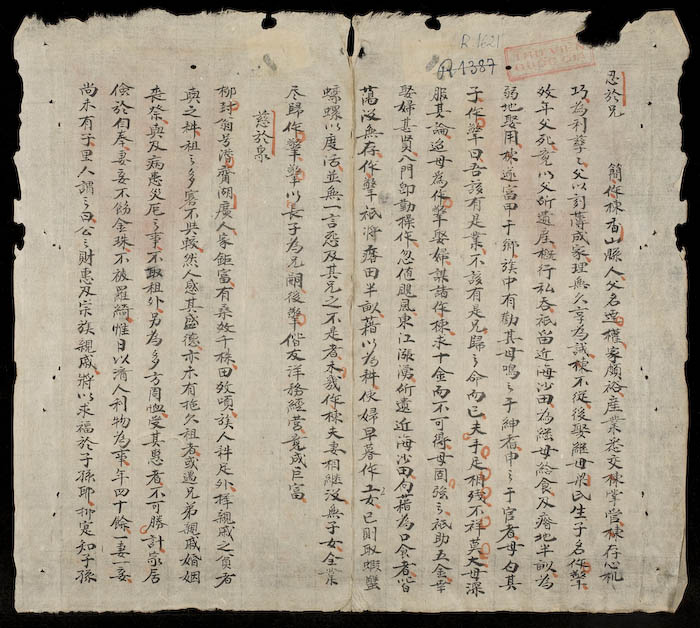 R.1621
R.1387
忍於兄 簡作棟香山縣人父名運權家頗裕産業花交棟掌管棟存心机
巧為利孳之父以刻薄成家理無久享為誡棟不從後娶継母梁氏生子名作肇
效年父死竟以父所遺産概行私吞祇留近海沙田為継母給食及瘠地半畝為
弱地娶用棟遂富甲于鄉族中有勸其母鳴之于紳者申之于官者母白其
子作肇曰吾該有是業不該有是兄歸之命而已夫手足相殘不祥莫大母深
服其論迨母為作肇娶婦謀諸作棟求十金而不可得母固強之祇助五金幸
娶婦甚賢入門即勤操作忽值颶風東江漲湧所遺近海沙田向藉為口食者皆
蕩沒無存作肇祇將瘠田半畝藉以為耕伙婦早暮作工女已則取蝦蟹
蟝螺以度活並無一言怨及其兄之不是者未幾作棟夫妻相継沒無子女全業
尽歸作肇肇以長子為兄嗣後肇偕友洋務經营竟成巨富
慈於衆
柳封翁号潛齋湖廣人家鉅富有桑效千株田效頃族人耕足外擇親戚之貧者
與之耕租之多寡不與較然人感其盛德亦未有拖欠租者或遇兄弟親戚婚姻
喪祭與及病患災厄之事不取租外另為多方周恤受其惠者不可勝計家居
儉於自奉妻妾不飭金珠不被羅綺惟日以濟人利物為事年四十餘一妻一妾
尚未有子里人謂之曰公之財惠及宗族親戚將以求福於子孫耶抑寔知子孫